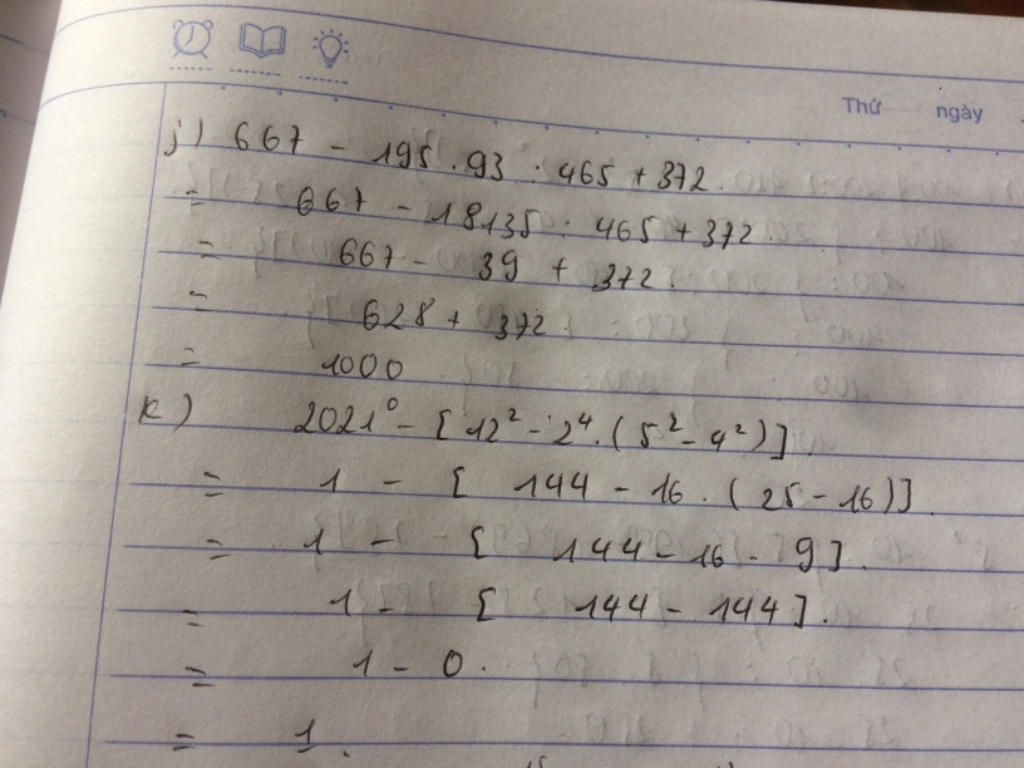 Thứ ngày
j) 667 - 195 . 93 : 465 + 372.
= 667 - 18135 : 465 + 372.
= 667 - 39 + 372.
= 628 + 372.
= 1000
k) 2021⁰ - [12² - 2⁴ . (5² - 4²)].
= 1 - [ 144 - 16 . (25 - 16)].
= 1 - [ 144 - 16 - 9].
= 1 - [ 144 - 144].
= 1 - 0.
= 1.